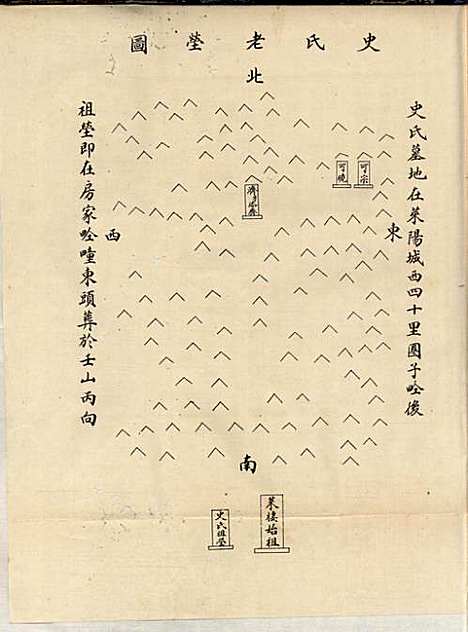 史氏老塋圖
北
史氏墓地在萊陽城西四十里團子唥後
東
可宗
可曉
西
祖塋即在房家唥疃東頭葬於壬山丙向
南
萊棲始祖
史氏祖塋